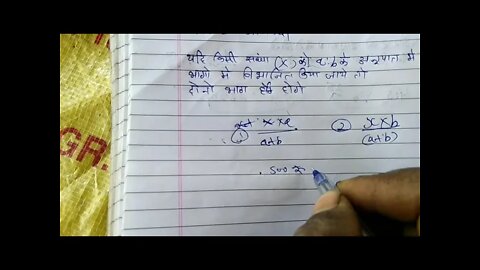 यदि किसी संख्या (x) को a:b के अनुपात में
भागो में विभाजित किया जाये तो
दोनो भाग होगे
① x×a/a+b ② x×b/(a+b)
500 रु
GR